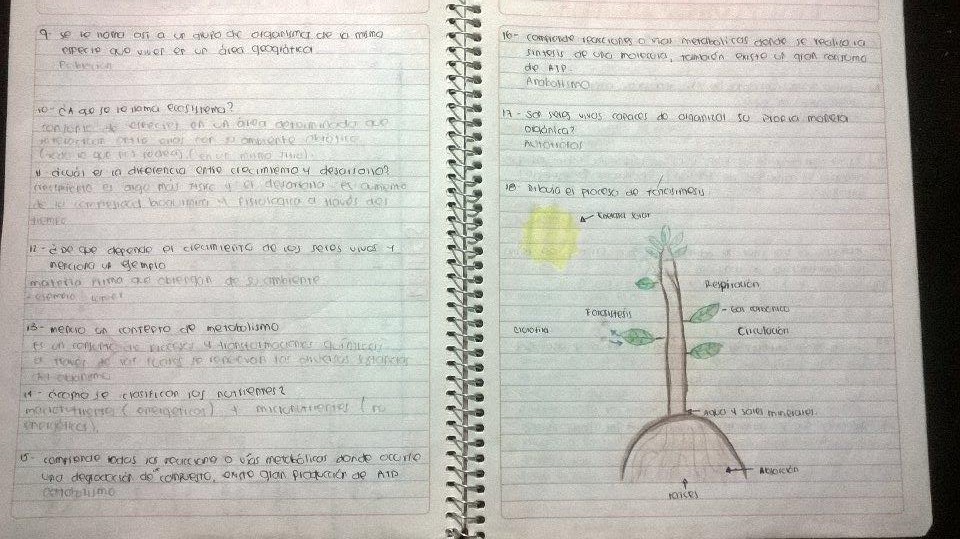 9. se le noma asi a un grupo de organismo de la misma
especie que viven en un área geográfica
Poblacion
10- ¿A que se le noma ecosistema?
conjunto de especies en un área determinada que
interactuan entre ellos con su ambiente abiótico
(todo lo que nos rodea) (en un mismo sitio).
11 ¿cuál es la diferencia entre crecimiento y desarrollo?
crecimiento es algo mas fisico y el desarrollo es aumento
de la complejidad bioquimica y fisiologica a través del
tiempo
12- ¿De que depende el crecimiento de los seres vivos y
menciona un ejemplo
materia prima que obtengan de su ambiente
ejemplo: comer
13- menciо un concepto de metabolismo
es un conjunto de procesos y transformaciones químicas
a traves de las cuales se renuevan las diversas sustancias
del organismo
14- ¿como se clasifican los nutrientes?
macronutrientes (energeticos) y micronutrientes (no
energéticos).
15- comprende todas las reaccione o vías metabólicas donde ocurre
una degradación de compuesto, existe gran producción de ATP
catabolismo
16- comprende reacciones o vias metabolicas donde se realiza la
sintesis de una molecula, también existe un gran consumo
de ATP.
Anabolismo
17- Son seres vivos capaces de organizar su propia materia
orgánica?
Autotrofos
18- Dibuja el proceso de fotosíntesis
Energia solar
Respiración
Fotosistesis
Gas carbonico
Clorofila
Circulación
Agua y sales minerales.
Absorción
raices